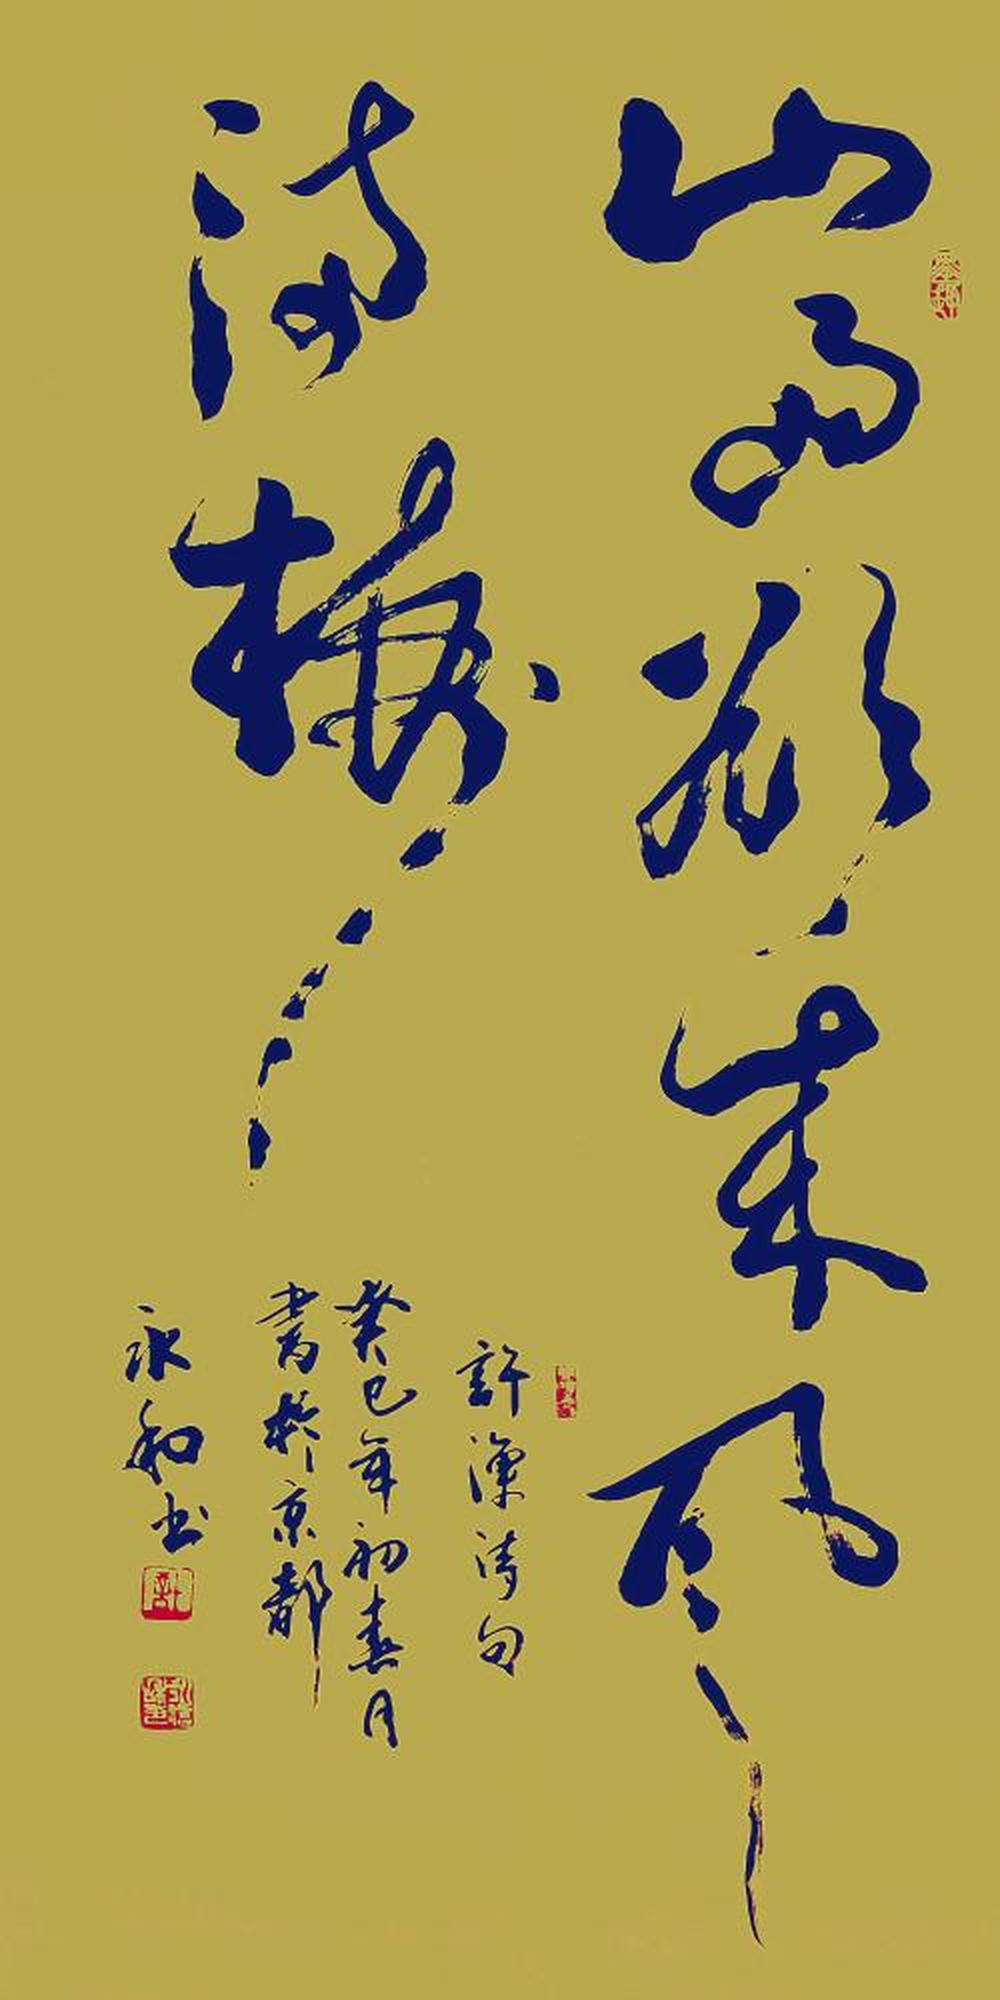 山雨欲来风
满楼
許渾诗句
癸巳年初春月
書於京都
永和书